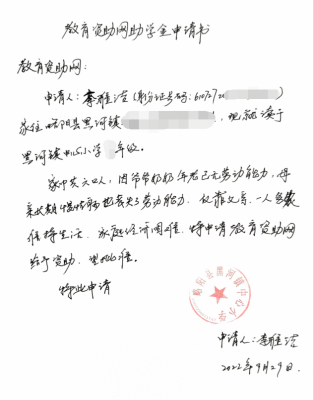 教育资助网助学金申请书
教育资助网：
申请人：李雅洁（身份证号码：610727
家住略阳县黑河镇 ，现就读于
黑河镇中心小学 年级。
家中共六口人，因爷爷奶奶年老已无劳动能力，母
亲长期 也丧失了劳动能力，仅靠父亲一人
维持生活，家庭经济困难，特申请教育资助网
给予资助，望批准。
特此申请
略阳县黑河镇中心小学
申请人：李雅洁
2022年9月29日.